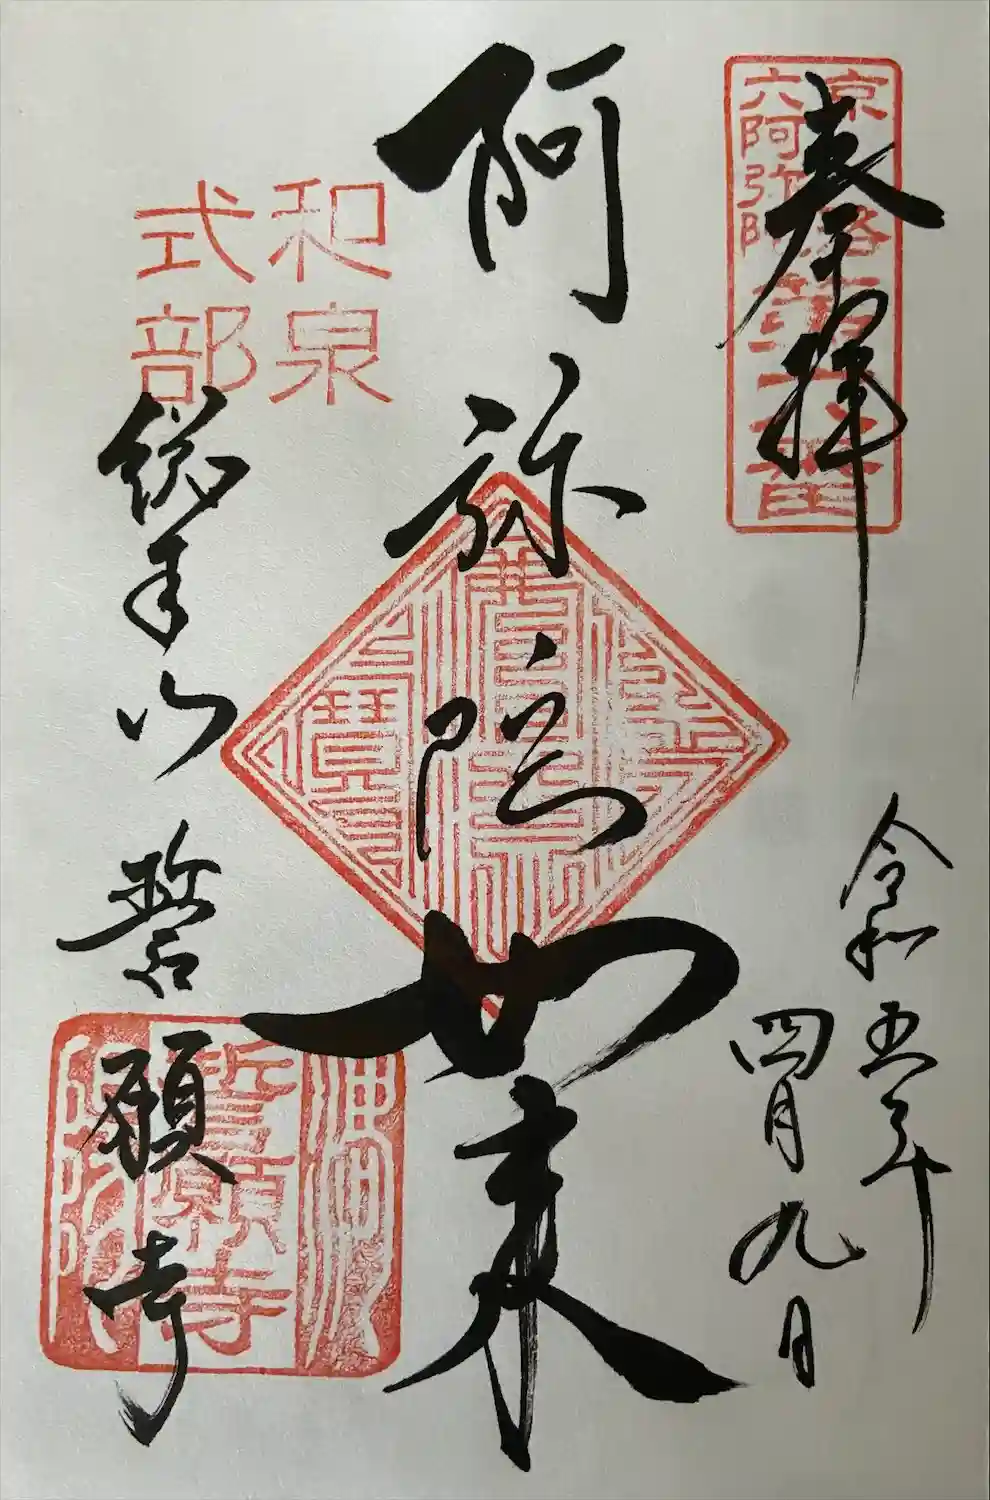 奉拝
京洛
六阿弥陀
第六番
令和五年
四月九日
阿弥陀如来
和泉
式部
総本山 誓願寺
誓願寺